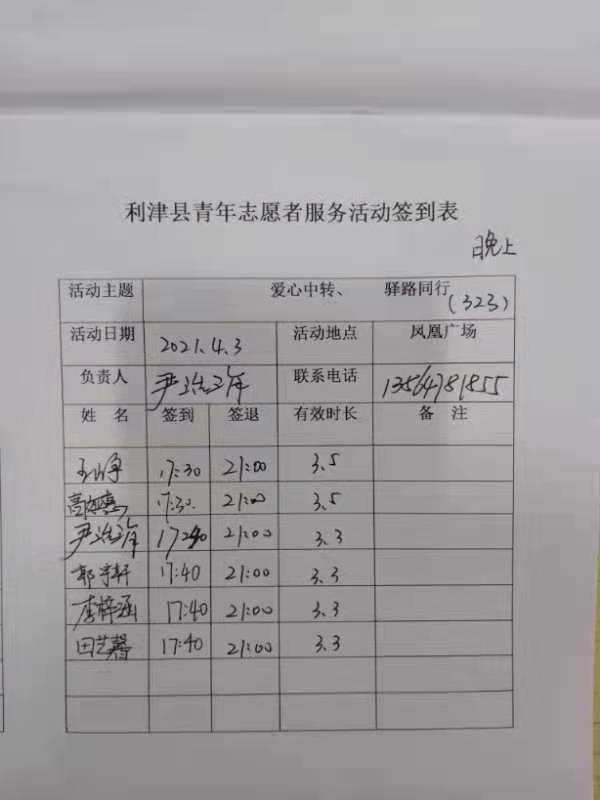 利津县青年志愿者服务活动签到表
晚上
活动主题 爱心中转、 驿路同行 (323)
活动日期 2021.4.3 活动地点 凤凰广场
负责人 尹 联系电话 13564781855
姓 名 签到 签退 有效时长 备 注
17:30 21:00 3.5
高 17:30 21:00 3.5
尹 17:40 21:00 3.3
郭宇轩 17:40 21:00 3.3
李梓涵 17:40 21:00 3.3
田艺馨 17:40 21:00 3.3